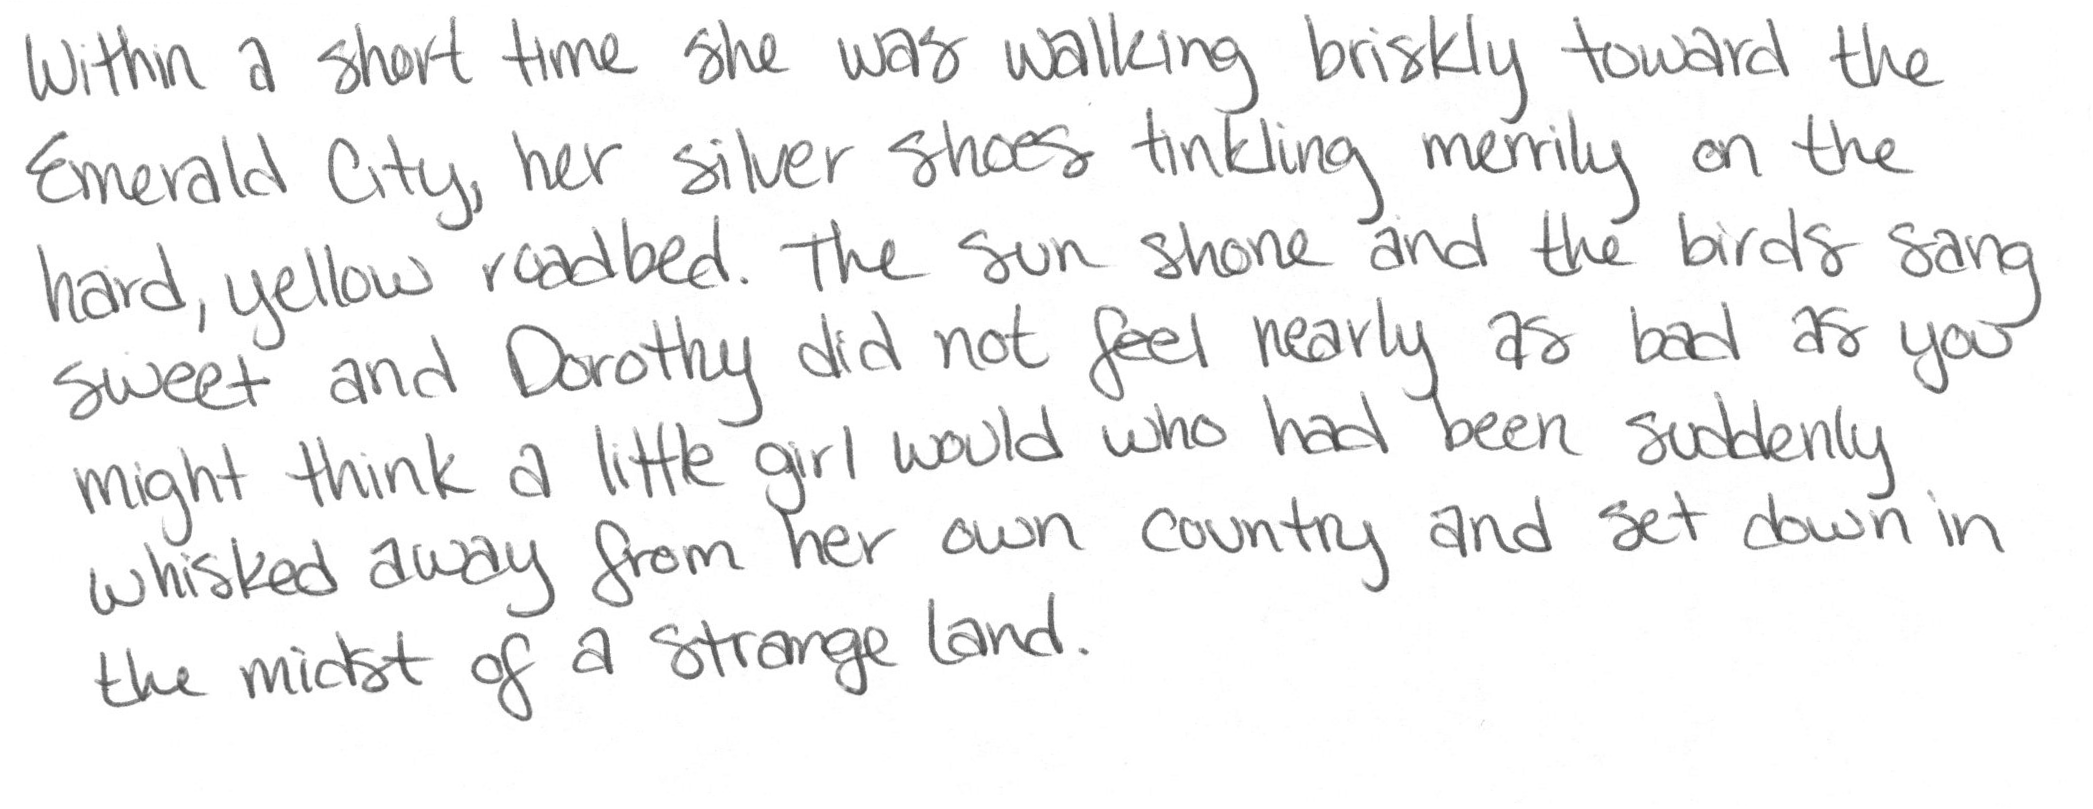 Within a short time she was walking briskly toward the
Emerald City, her silver shoes tinkling merrily on the
hard, yellow roadbed. The sun shone and the birds sang
sweet and Dorothy did not feel nearly as bad as you
might think a little girl would who had been suddenly
whisked away from her own country and set down in
the midst of a strange land.